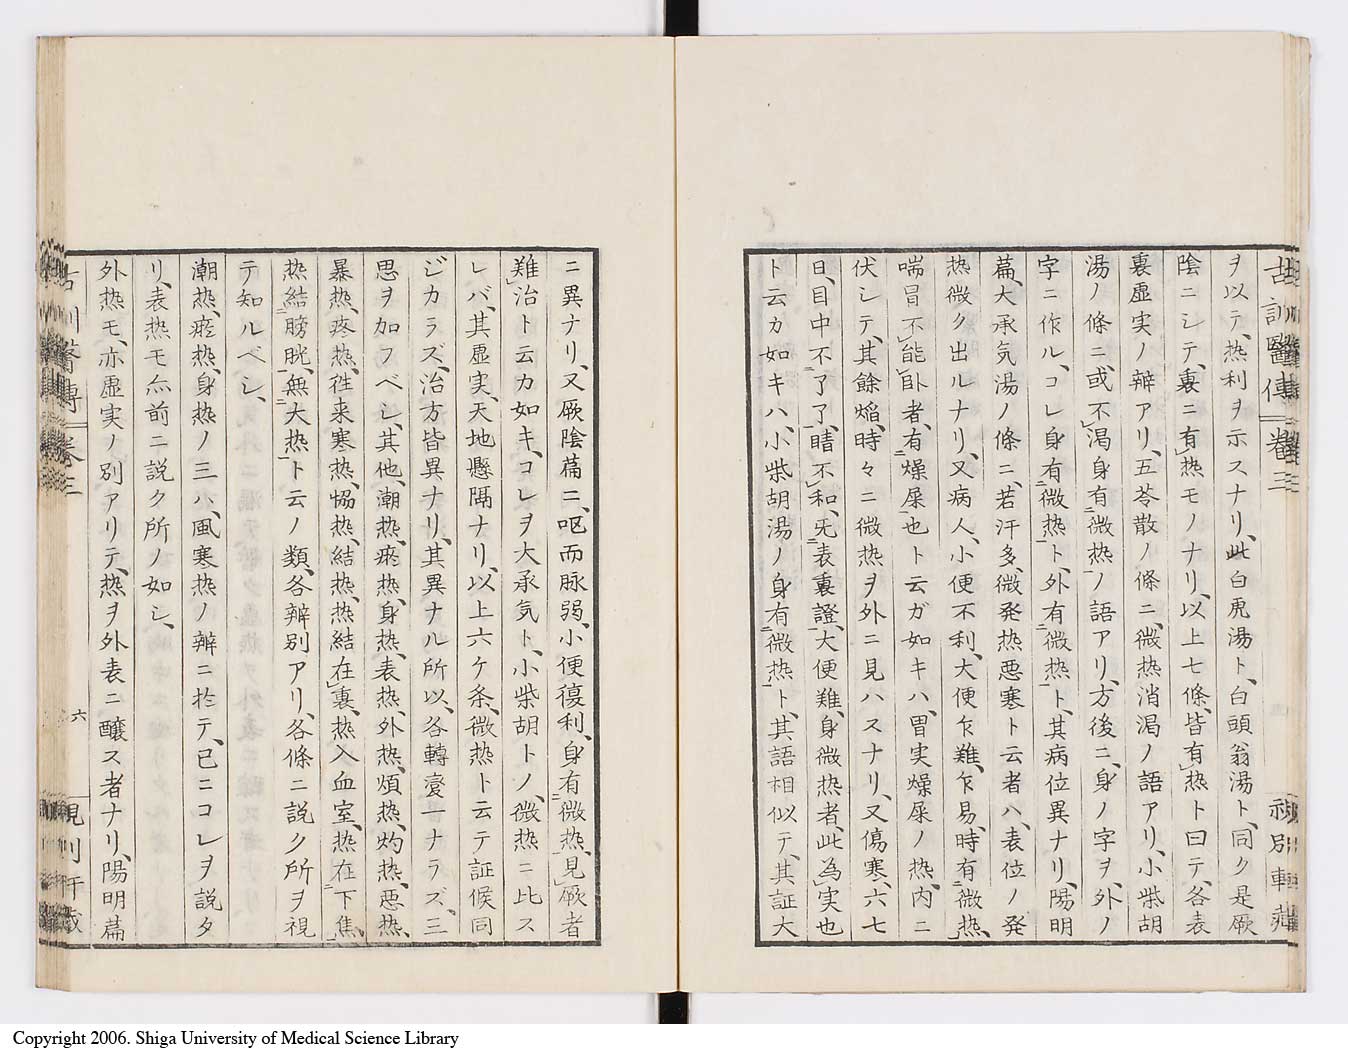 古訓醫傳 卷三
ヲ以テ、热利ヲ示スナリ、此白虎湯ト、白頭翁湯ト、同ク是厥
陰ニシテ、裏ニ有热モノナリ、以上七條、皆有热ト曰テ、各表
裏虚実ノ辨アリ、五苓散ノ條ニ、微热消渴ノ語アリ、小柴胡
湯ノ條ニ、或不渴身有微热ノ語アリ、方後ニ、身ノ字ヲ、外ノ
字ニ作ル、コレ身有微热ト、外有微热ト、其病位異ナリ、陽明
萹、大承気湯ノ條ニ、若汗多、微発热悪寒ト云者ハ、表位ノ発
热微ク出ルナリ、又病人、小便不利、大便乍難、乍易、時有微热、
喘冒不能臥者、有燥屎也ト云ガ如キハ、胃実燥屎ノ热、内ニ
伏シテ、其餘焰、時々ニ微热ヲ外ニ見ハスナリ、又傷寒、六七
日、目中不了了、睛不和、无表裏證、大便難、身微热者、此為実也
ト云カ如キハ、小柴胡湯ノ身有微热ト、其語相似テ、其証大
ニ異ナリ、又厥陰萹ニ、呕而脉弱、小便復利、身有微热、見厥者
難治ト云カ如キ、コレヲ大承気ト、小柴胡トノ、微热ニ比ス
レバ、其虚実、天地懸隔ナリ、以上六ケ条、微热ト云テ証候同
ジカラズ、治方皆異ナリ、其異ナル所以、各轉変一ナラズ、三
思ヲ加フベシ、其他、潮热、瘀热、身热、表热、外热、煩热、灼热、悪热、
暴热、疼热、徃来寒热、恊热、結热、热結在裏、热入血室、热在下焦、
热結膀胱、無大热ト云ノ類、各辨別アリ、各條ニ説ク所ヲ視
テ知ルベシ、
潮热、瘀热、身热ノ三ハ、風寒热ノ辨ニ於テ、已ニコレヲ説タ
リ、表热モ亦前ニ説ク所ノ如シ、
外热モ、亦虚実ノ別アリテ、热ヲ外表ニ釀ス者ナリ、陽明萹
六
Copyright 2006. Shiga University of Medical Science Library